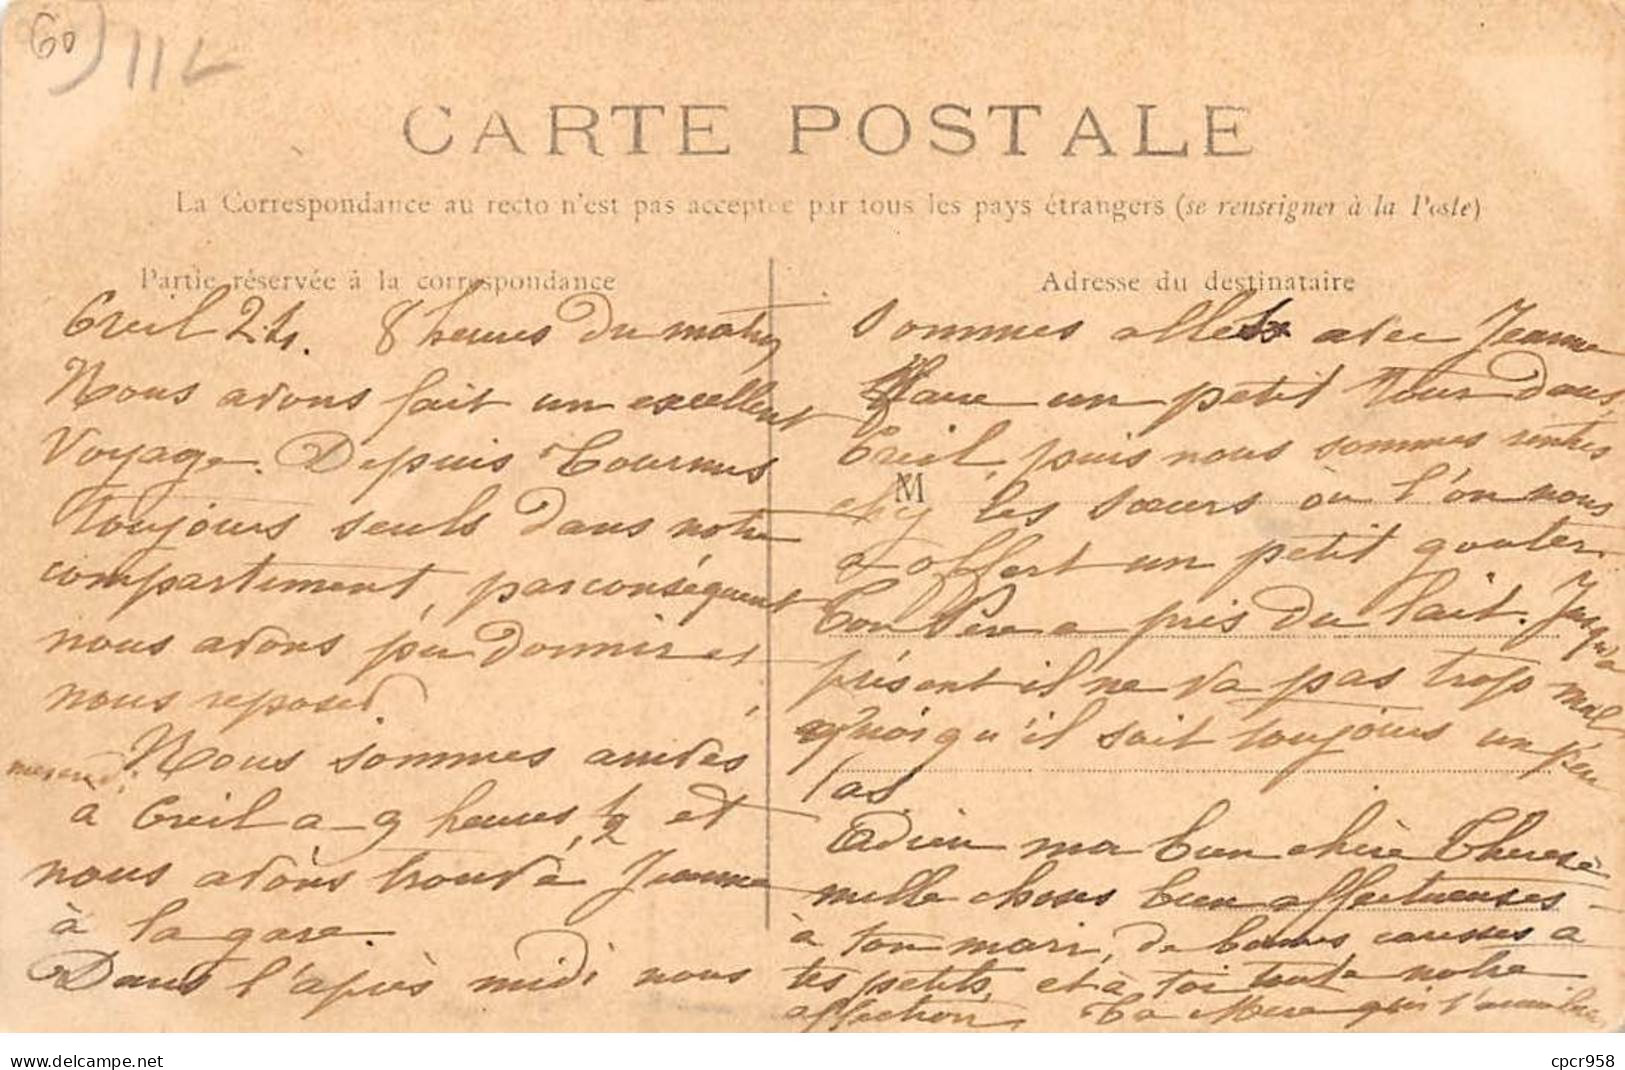 60) 11L
CARTE POSTALE
La Correspondance au recto n'est pas acceptée par tous les pays étrangers (se renseigner à la Poste)
Partie réservée à la correspondance
Creil 8 heures du matin
Nous avons fait un excellent
Voyage. Depuis Tournus
toujours seuls dans notre
compartiment, par conséquent
nous avons pu dormir et
nous reposer.
Nous sommes arrivés
mercredi
à Creil a 9 heures 1/2 et
nous avons trouvé Jeanne
à la gare.
Dans l'après midi nous
Adresse du destinataire
sommes allés avec Jeanne
faire un petit tour dans
Creil, puis nous sommes rentrés
M
chez les sœurs où l'on nous
a offert un petit gouter
Ton Père a pris du lait. Jusqu'a
présent il ne va pas trop mal
quoiqu'il soit toujours un peu
las.
Adieu ma bien chère Thérèse
mille choses bien affectueuses
à ton mari, de bonnes caresses a
tes petits, et à toi toute notre
affection. Ta Mère qui t'aime
cpcr958